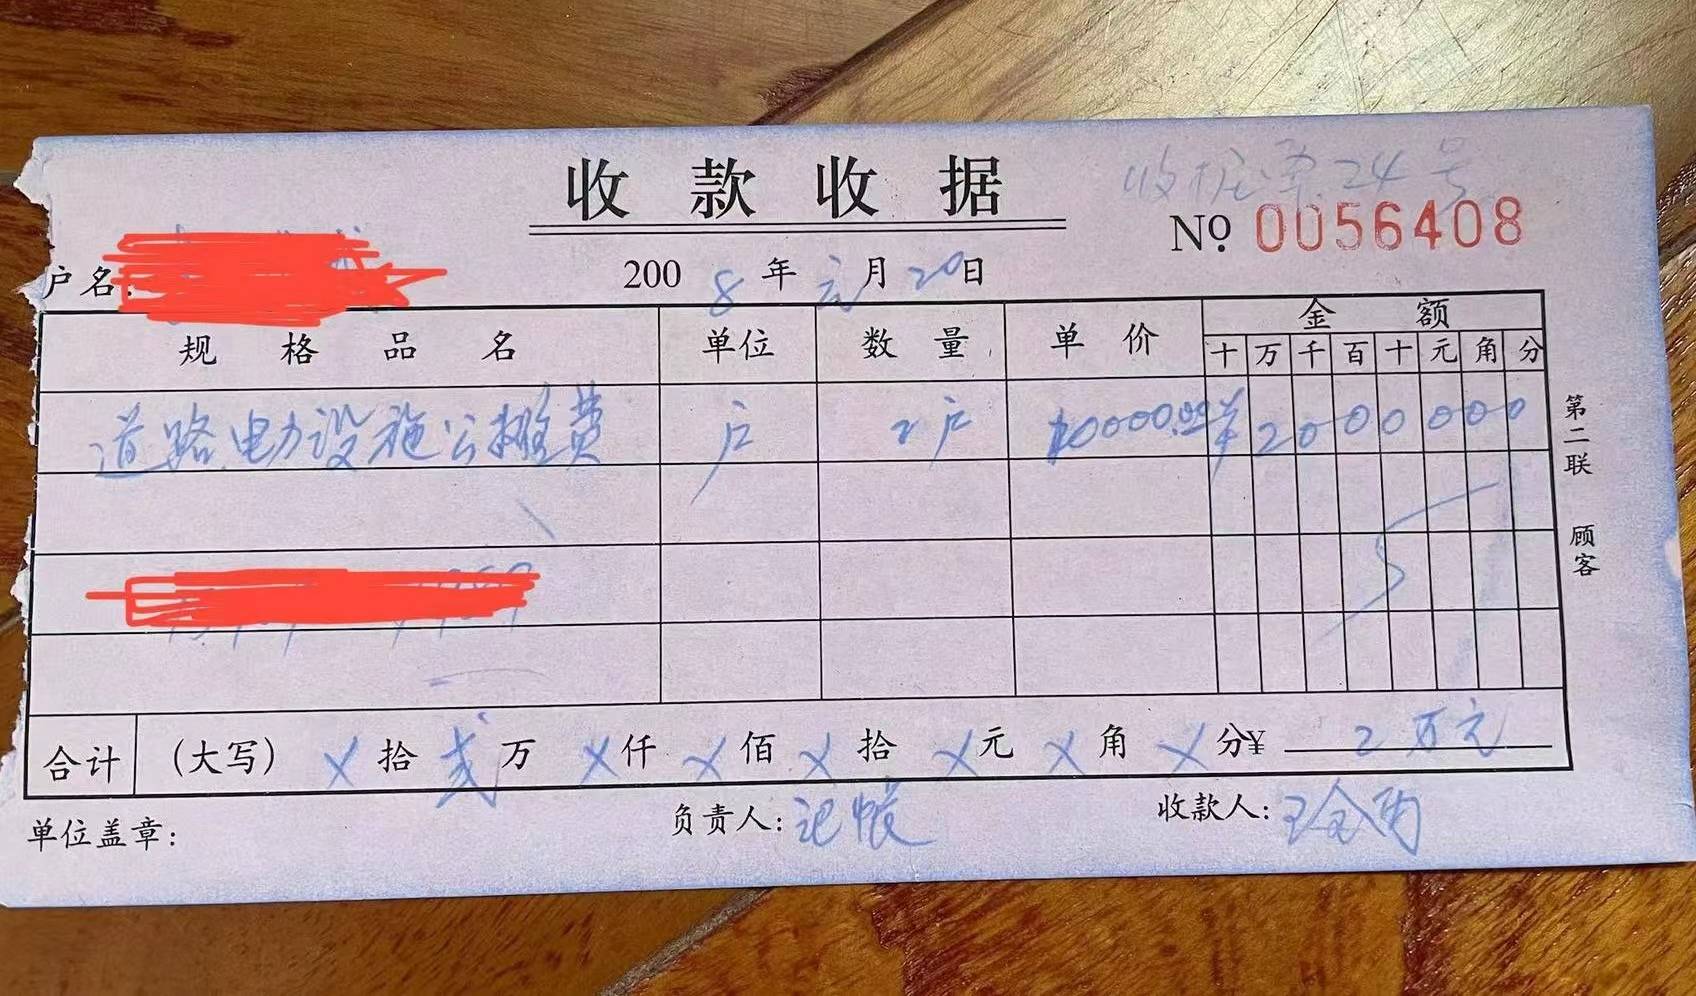 收款收据
收据第24号
№ 0056408
户名:
2008年元月20日
规格品名 单位 数量 单价 金额
十 万 千 百 十 元 角 分
道路电力设施公摊费 户 2户 10000.00 ¥2000000
第二联 顾客
合计 (大写) X拾贰万X仟X佰X拾X元X角X分¥ 2万元
单位盖章: 负责人:记帐 收款人: